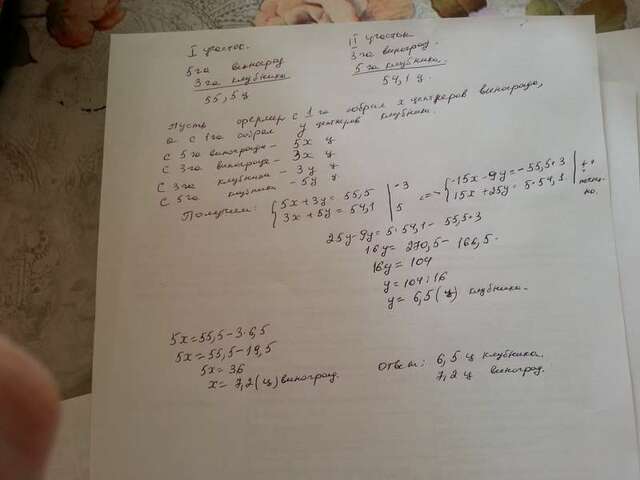 I участок.
II участок
5 га виноград
3 га клубника
55,5 ц
3 га виноград.
5 га клубника.
54,1 ц.
Пусть фермер с 1 га собрал x центнеров винограда,
а с 1 га собрал y центнеров клубники.
С 5 га винограда - 5x ц
С 3 га винограда - 3x ц
С 3 га клубники - 3y ц
С 5 га клубники - 5y ц
Получаем: { 5x + 3y = 55,5 | -3
3x + 5y = 54,1 | 5
<=> { -15x - 9y = -55,5·3
15x + 25y = 5·54,1 | +
25y - 9y = 5·54,1 - 55,5·3
16y = 270,5 - 166,5.
16y = 104
y = 104:16
y = 6,5 (ц) клубника.
5x = 55,5 - 3·6,5
5x = 55,5 - 19,5
5x = 36
x = 7,2 (ц) виноград.
Ответ: 6,5 ц клубника.
7,2 ц виноград.